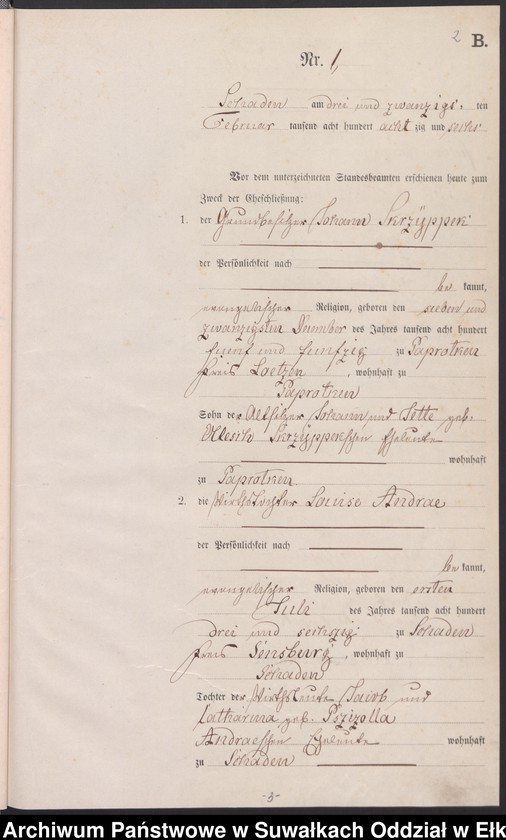 2
B.
Nr. 1,
Schaden am drei und zwanzigs. ten
Februar tausend acht hundert acht zig und sechs
Vor dem unterzeichneten Standesbeamten erschienen heute zum
Zweck der Eheschließung:
1. der Grundbesitzer Johann Skrzÿppek
der Persönlichkeit nach
be kannt,
evangelischer Religion, geboren den sieben und
zwanzigsten Dezember des Jahres tausend acht hundert
fünf und fünfzig zu Paprotken
Kreis Loetzen, wohnhaft zu
Paprotken
Sohn der Altsitzer Johann und Jette geb.
Skrzÿppekschen Eheleute
wohnhaft
zu Paprotken
2. die Wirthstochter Louise Andrae
der Persönlichkeit nach
be kannt,
evangelischer Religion, geboren den ersten
Juli des Jahres tausend acht hundert
drei und sechszig zu Schaden
Kreis Sensburg, wohnhaft zu
Schaden
Tochter der Wirthsleute Jacob und
Catharina geb. Pszizolla
Andraeschen Eheleute wohnhaft
zu Schaden
-3-
Archiwum Państwowe w Suwałkach Oddział w Ełk